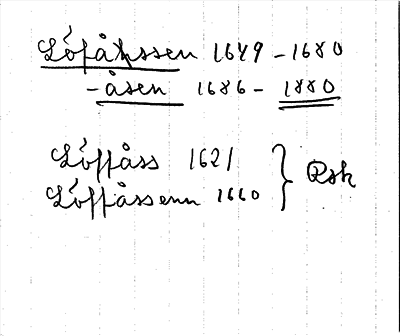 Löfåssen 1649-1680
-åsen 1686-1880
Löffåss 1621
Löffåssenn 1660 } Rsk